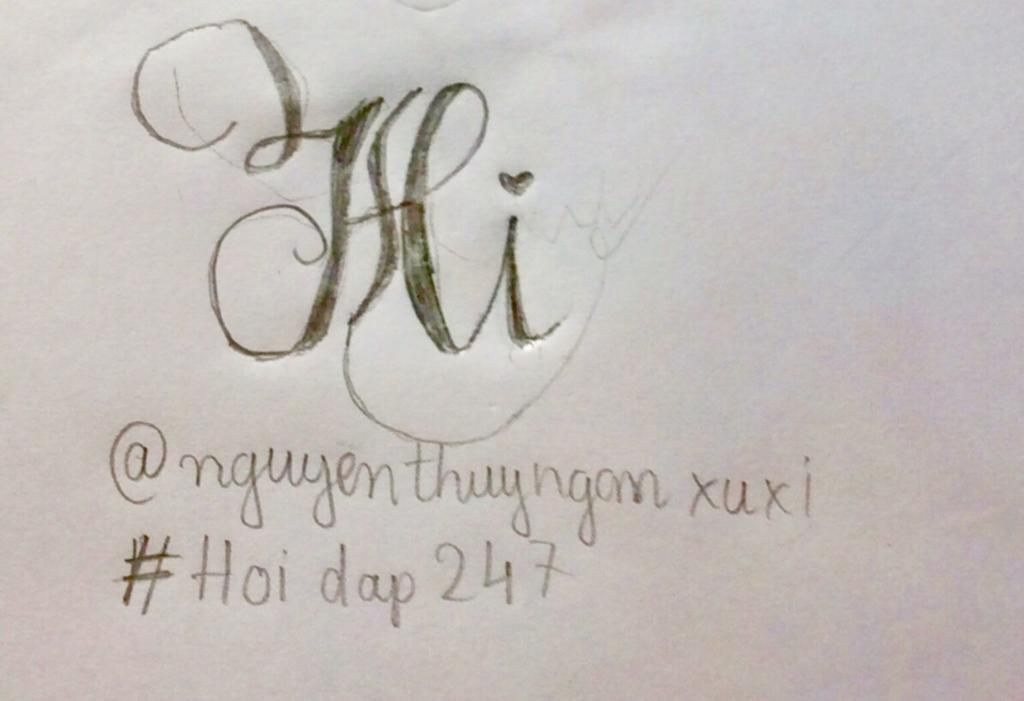 Hi
@nguyenthuyngan xuxi
#Hoi dap 247